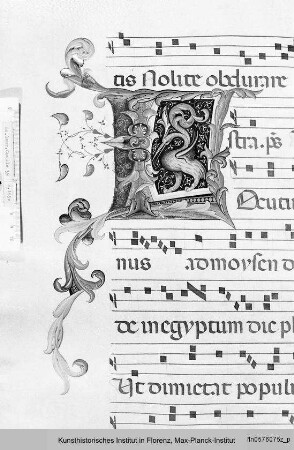 tis Nolite obdurare
stra. ps
Locutu
nus ad moysen d
de in egyptum dic ph
Et dimictat populu
Kunsthistorisches Institut in Florenz, Max-Planck-Institut
fln0576076z_p